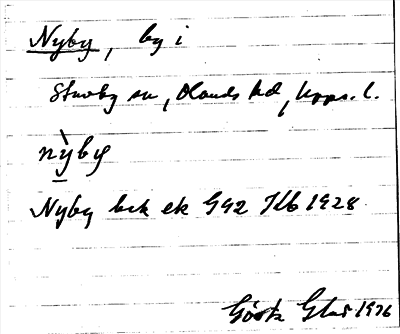 Nyby, by i
Stavby sn, Olands hd, Upps. l.
nỳby
Nyby bek ek G92 Jb 1928
1936